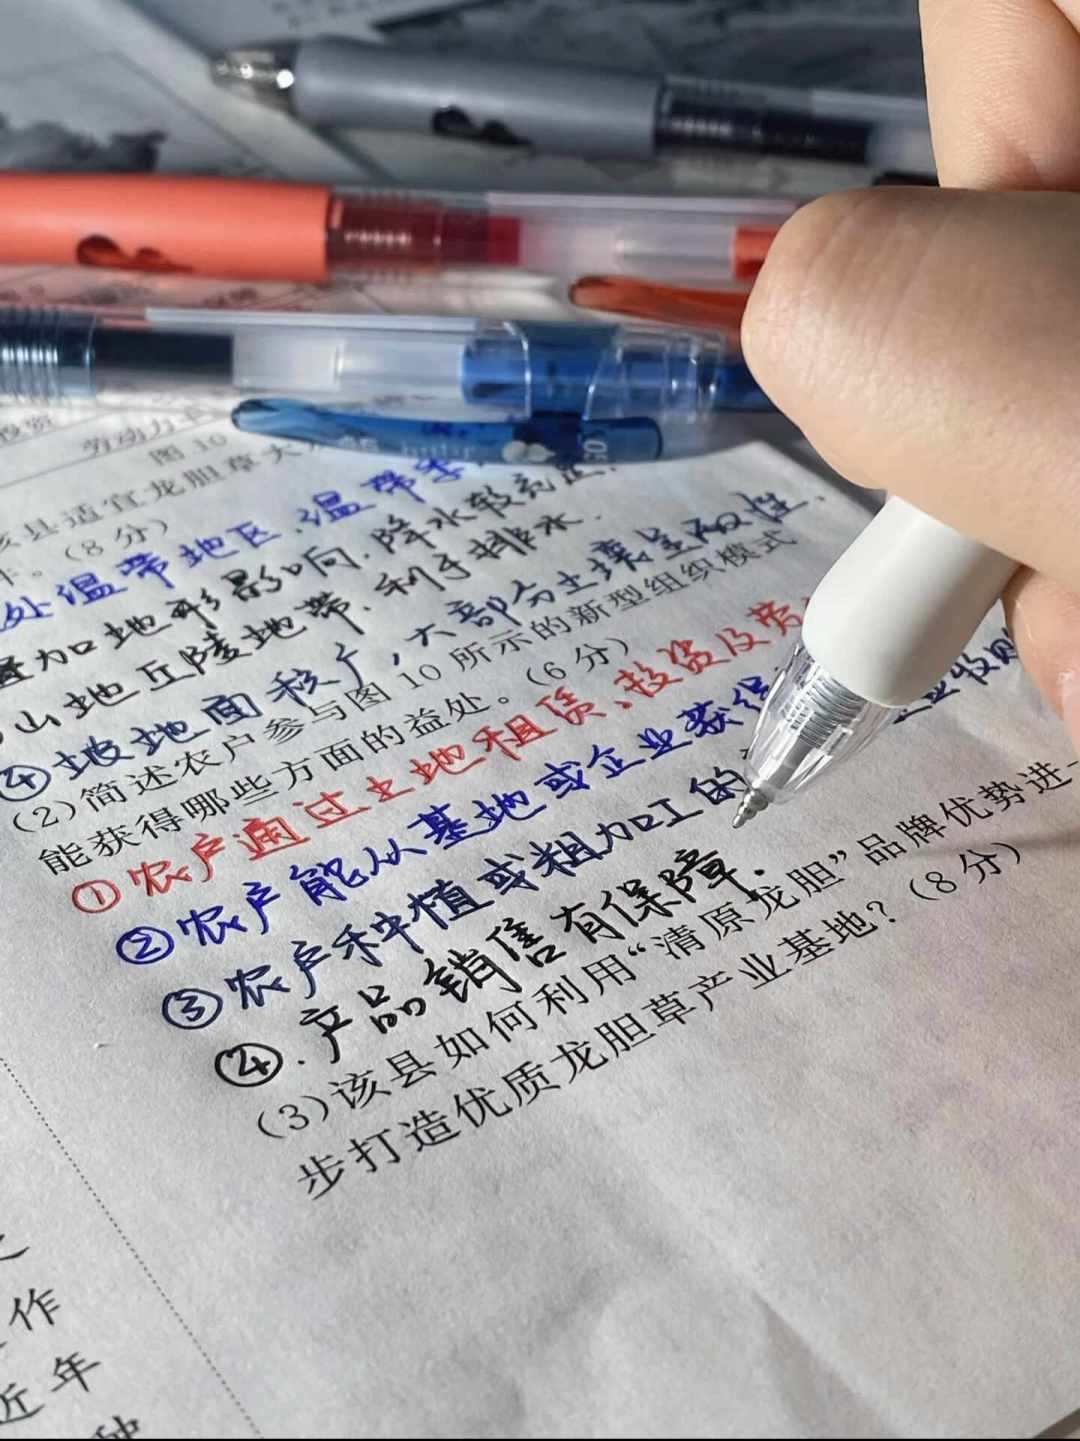 投资
劳动力
图10
龙胆草大
该县适宜
。(8分)
处温带地区.温带季
加地形影响.降水较
山地丘陵地带.利于排水.
④坡地面积广,大部分土壤呈酸性.
(2)简述农户参与图10所示的新型组织模式
能获得哪些方面的益处。(6分)
①农户通过土地租赁、投资及劳
②农户能从基地或企业获得
收购
③农户种植或粗加工的
④.产品销售有保障.
(3)该县如何利用“清原龙胆”品牌优势进一
步打造优质龙胆草产业基地?(8分)
作
近年
种